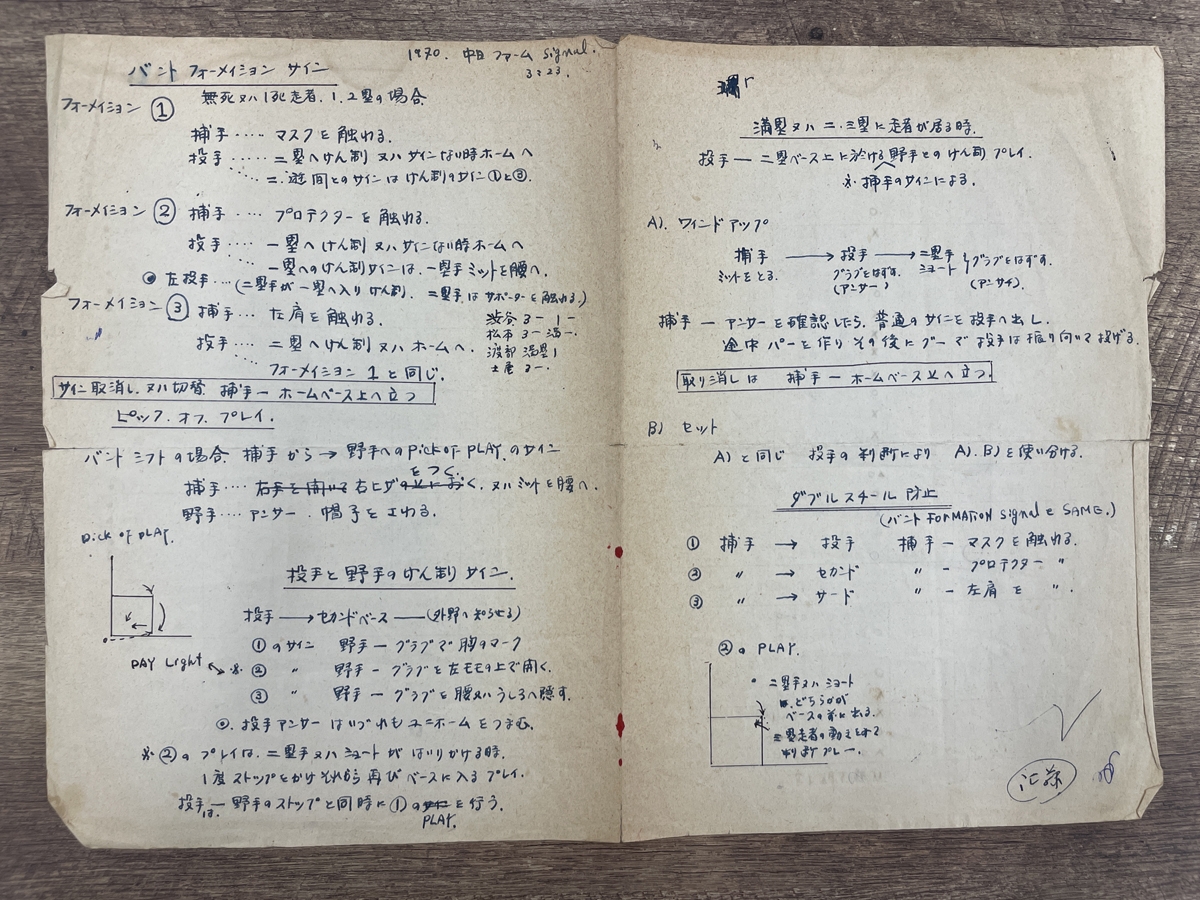 1970. 中日 ファーム signal.
3.23.
バント フォーメイション サイン
フォーメイション ① 無死又ハ1死走者. 1.2塁の場合
捕手 ‥‥ マスクを触れる.
投手 ‥‥ 二塁へけん制 又ハ サインない時ホームへ
二.遊間とのサインは けん制のサイン①と③.
フォーメイション ② 捕手 ‥‥ プロテクターを触れる.
投手 ‥‥ 一塁へけん制 又ハ サインない時ホームへ
一塁へのけん制サインは. 一塁手ミットを腰へ.
左投手‥‥(二塁手が一塁へ入りけん制. 二塁手はサポーターを触れる.)
フォーメイション ③ 捕手 ‥‥ 左肩を触れる.
投手 ‥‥ 二塁へけん制 又ハ ホームへ.
フォーメイション 1 と同じ.
渋谷 3ー 1ー
松本 3ー 満ー
渡部 満塁1
土屋 3ー.
サイン取消し. 又ハ切替 捕手ー ホームベース上へ立つ
ピック.オフ.プレイ.
バントシフトの場合. 捕手から → 野手へのPick of PLAY.のサイン
をつく.
捕手‥‥ 右手を開いて 右ヒザの上におく. 又ハミットを腰へ.
野手‥‥ アンサー. 帽子をさわる.
Pick of PLAY.
投手と野手のけん制サイン.
投手 → セカンドベース ―(外野へ知らせる)
①のサイン 野手ー グラブで胸のマーク
DAY Light ※ ② 〃 野手ー グラブを左モモの上で開く.
③ 〃 野手ー グラブを腰又ハうしろへ隠す.
◎. 投手アンサーはいづれもユニホームをつまむ.
※ ②のプレイは. 二塁手又ハショートがはいりかける時.
1度ストップをかけそれから再びベースに入るプレイ.
投手は.ー 野手のストップと同時に①のサインを行う.
PLAY.
満塁又ハ二.三塁に走者が居る時.
投手 ー 二塁ベース上に於ける野手とのけん制プレイ.
※. 捕手のサインによる.
A). ワインドアップ
捕手 → 投手 → 二塁手 ショート グラブをはずす.
ミットをとる. グラブをはずす. (アンサー) (アンサイ).
捕手 ー アンサーを確認したら. 普通のサインを投手へ出し.
途中 パーを作り その後にグーで投手は振り向いて投げる.
取り消しは 捕手 ー ホームベース上へ立つ.
B) セット
A)と同じ 投手の判断により A).B)を使い分ける.
ダブルスチール防止
(バントFORMATION signalとSAME.)
① 捕手 → 投手 捕手ー マスクを触れる.
② 〃 → セカンド 〃 ー プロテクター 〃
③ 〃 → サード 〃 ー 左肩を 〃.
②のPLAY.
二塁手又ハショート
は.どちらかが
ベースの前に出る.
三塁走者の動きをみて
判断プレー.